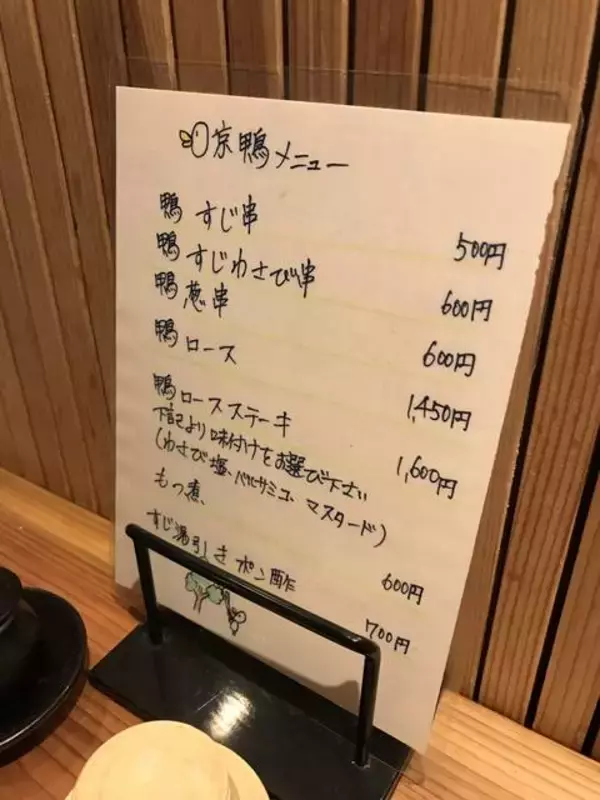 京鴨メニュー
鴨 すじ串 500円
鴨 すじわさび串 600円
鴨 葱串 600円
鴨 ロース 1,450円
鴨ロースステーキ 1,600円
下記より味付けをお選び下さい
(わさび塩、バルサミコ、マスタード)
もつ煮、 600円
すじ湯引き ポン酢 700円